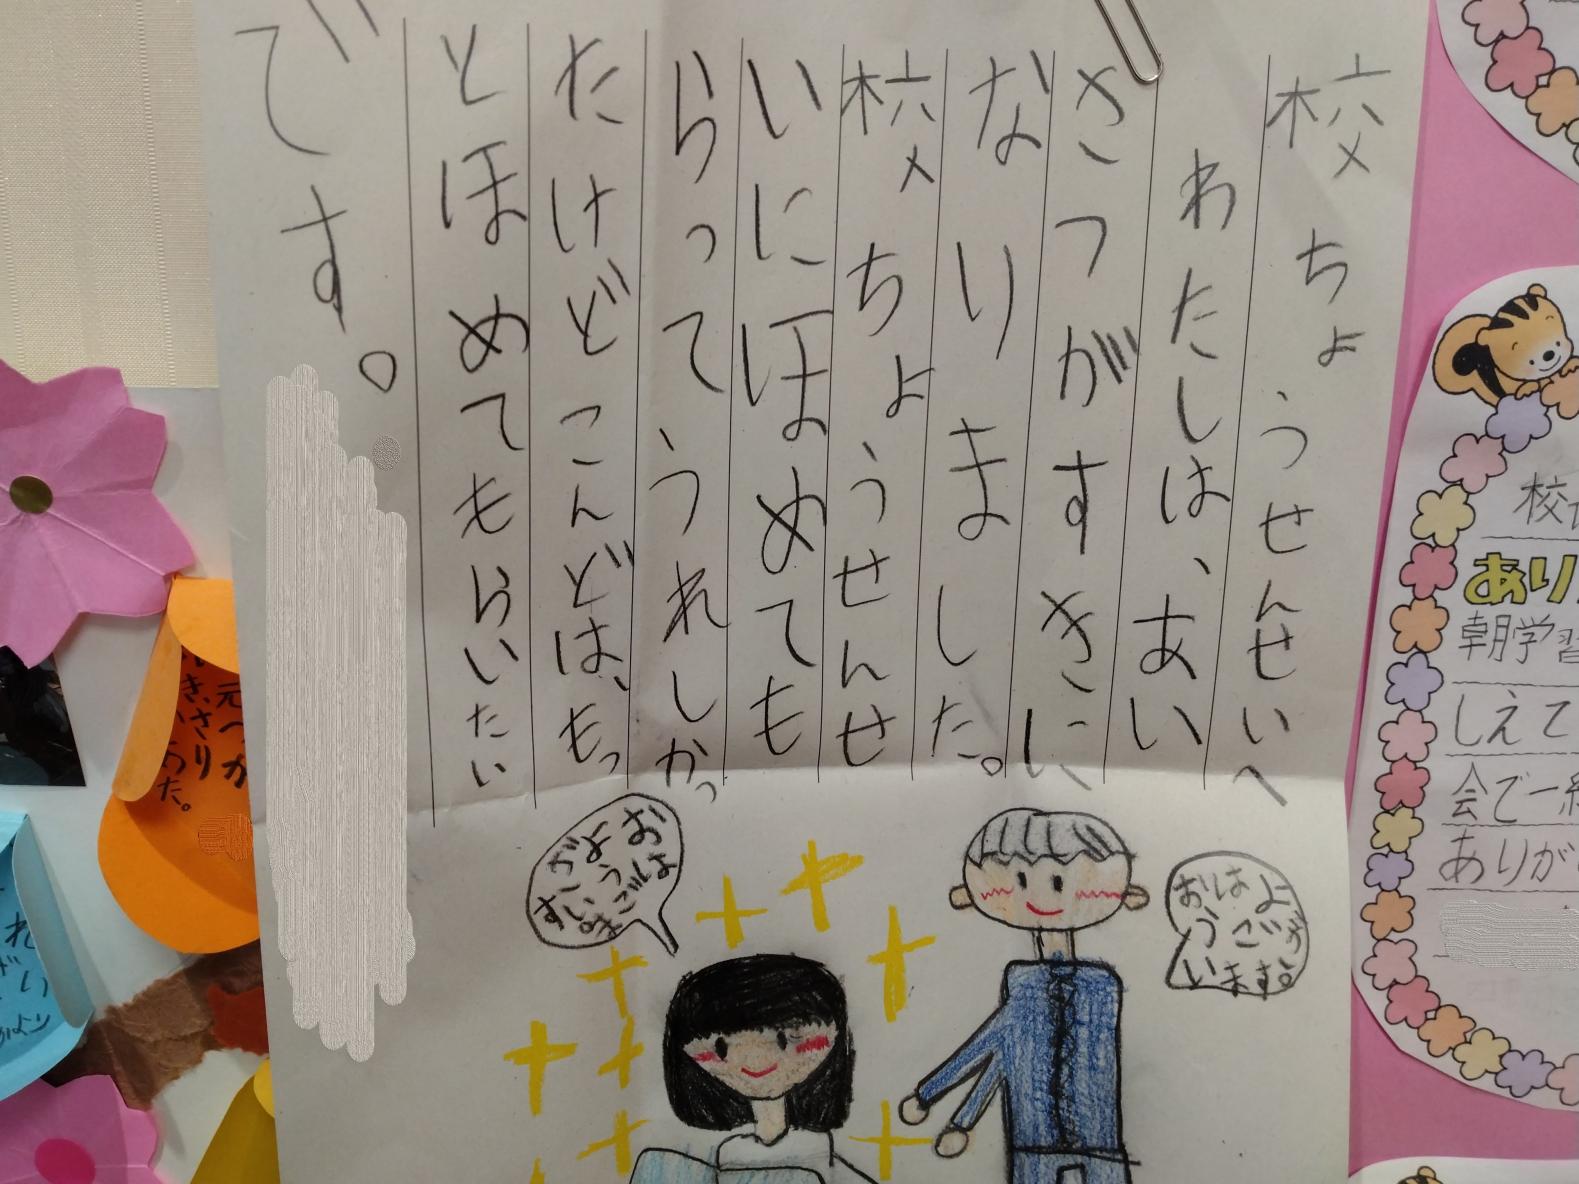 校ちょうせんせいへ
わたしは、あい
さつがすきに
なりました。
校ちょうせんせ
いにほめても
らってうれしかっ
たけどこんどは、もっ
とほめてもらいたい
です。
おはよ
うござ
います。
おはよ
うござ
います
校
あり
朝学習
しえて
会で一
ありが